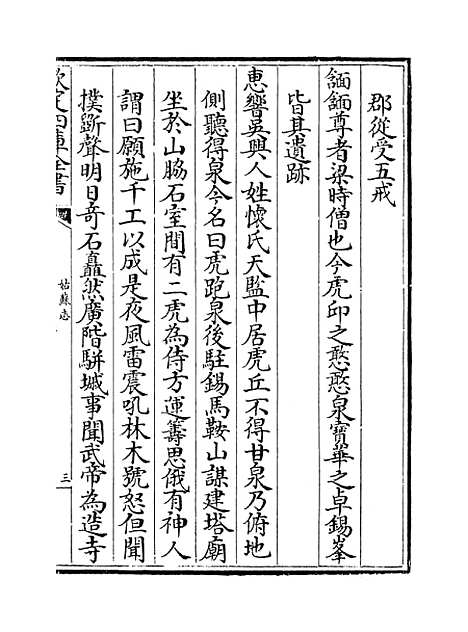 郡從受五戒
緬緬尊者梁時僧也今虎邱之憨憨泉寶華之卓錫峯
皆其遺跡
惠響吳興人姓懷氏天監中居虎丘不得甘泉乃俯地
側聽得泉今名曰虎跑泉後駐錫馬鞍山謀建塔廟
坐於山脇石室間有二虎為侍方運籌思俄有神人
謂曰願施千工以成是夜風雷震吼林木號怒但聞
撲斵聲明日奇石矗然廣階駢墄事聞武帝為造寺
欽定四庫全書
姑蘇志
三